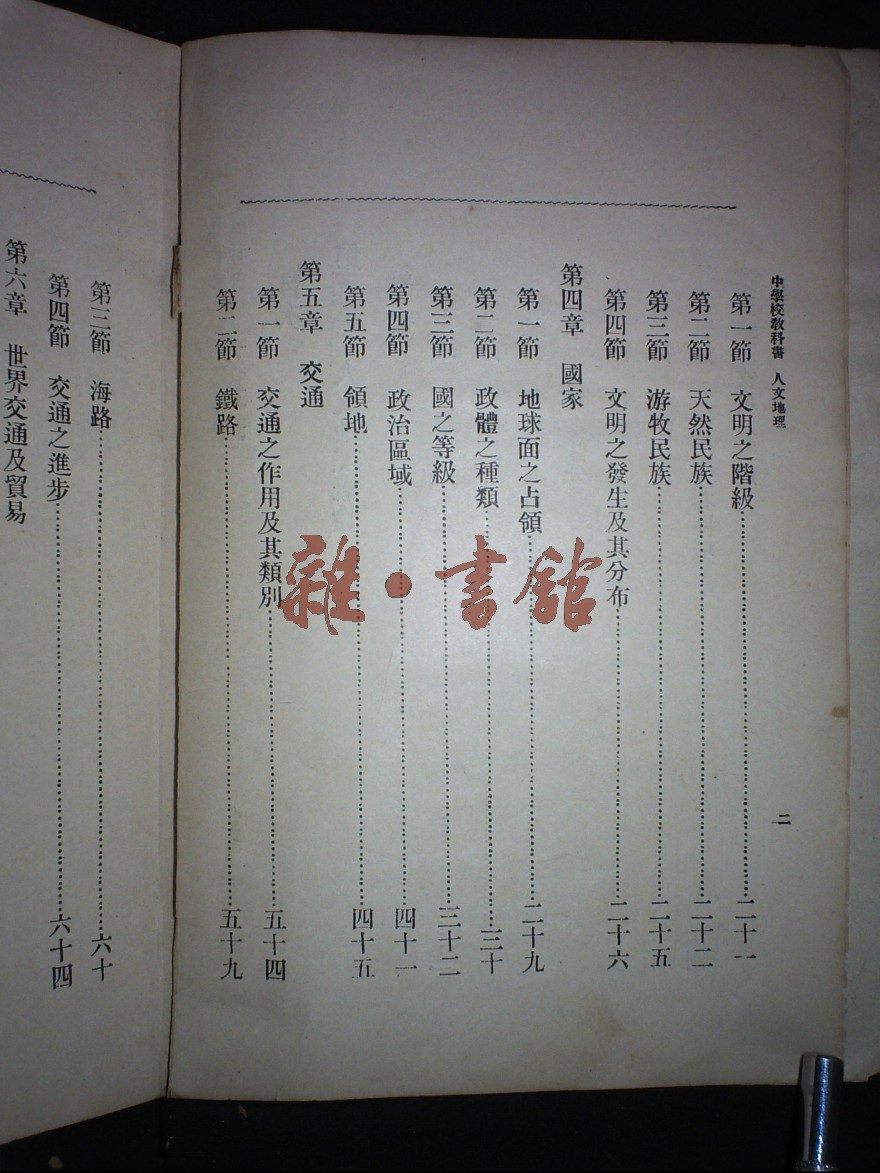 中學校敎科書 人文地理 二
第一節 文明之階級 二十一
第二節 天然民族 二十二
第三節 游牧民族 二十五
第四節 文明之發生及其分布 二十六
第四章 國家
第一節 地球面之占領 二十九
第二節 政體之種類 三十
第三節 國之等級 三十二
第四節 政治區域 四十一
第五節 領地 四十五
第五章 交通
第一節 交通之作用及其類別 五十四
第二節 鐵路 五十九
第三節 海路 六十
第四節 交通之進步 六十四
第六章 世界交通及貿易
雜·書館